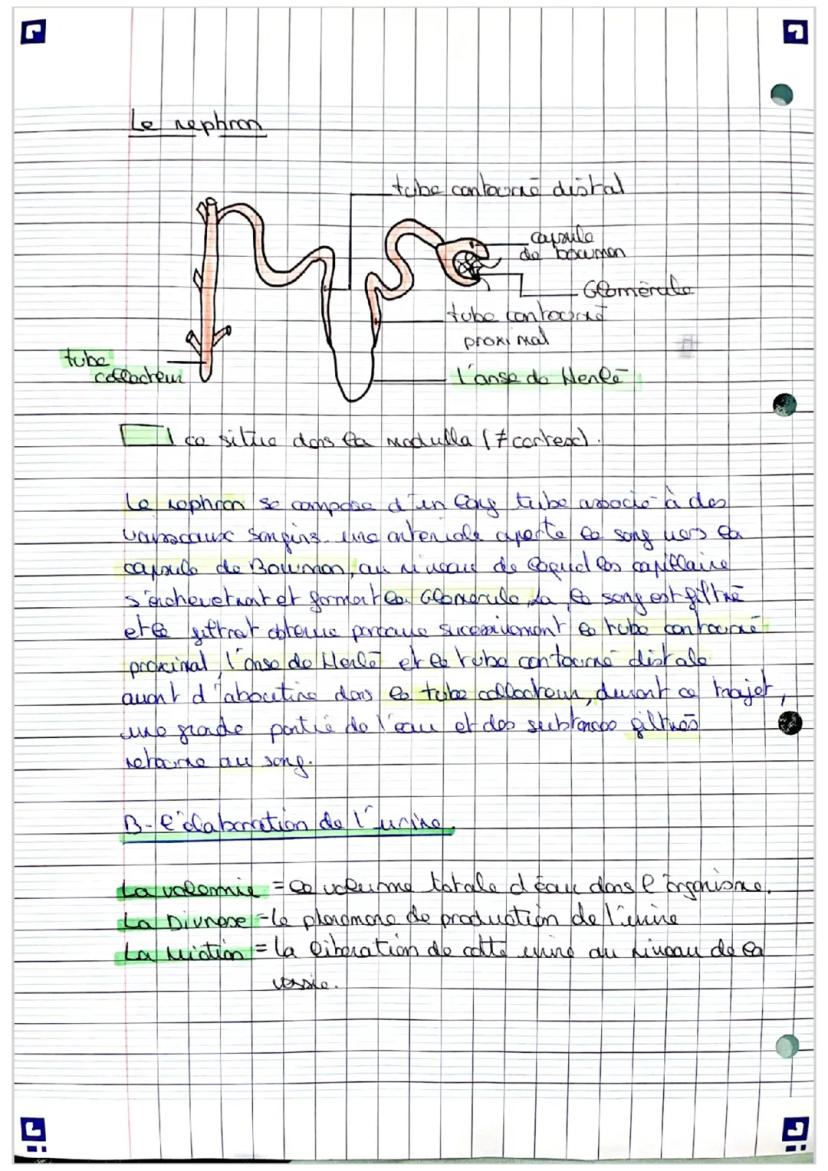 Le nephron
tube contourné distal
capsule
de bowman
Glomérule
tube contourné
proximal
tube
collecteur
l'anse de Henlé
ce situe dans la medulla (≠ cortex).
Le nephron se compose d'un long tube associé à des
vaisseaux sanguins. une arteriole aporte le song vers la
capsule de Bowman, au niveau de lequel les capillaire
s'echevetrent et forment le Glomérule. La, le song est filtré
et le filtrat obtenue parcoue sucessivement le tube contourné
proximal, l'anse de Henlé et le tube contourné distale
avant d'aboutire dans le tube collecteur, durant ce trajet,
une grade partie de l'eau et des substances filtrés
retourne au song.
B- l'élaboration de l'urine.
La volemie = le volume totale d'éau dans l'organisme.
La Diurese - le phenomene de production de l'urine
La Miction = la liberation de cette urine au niveau de la
vessie.